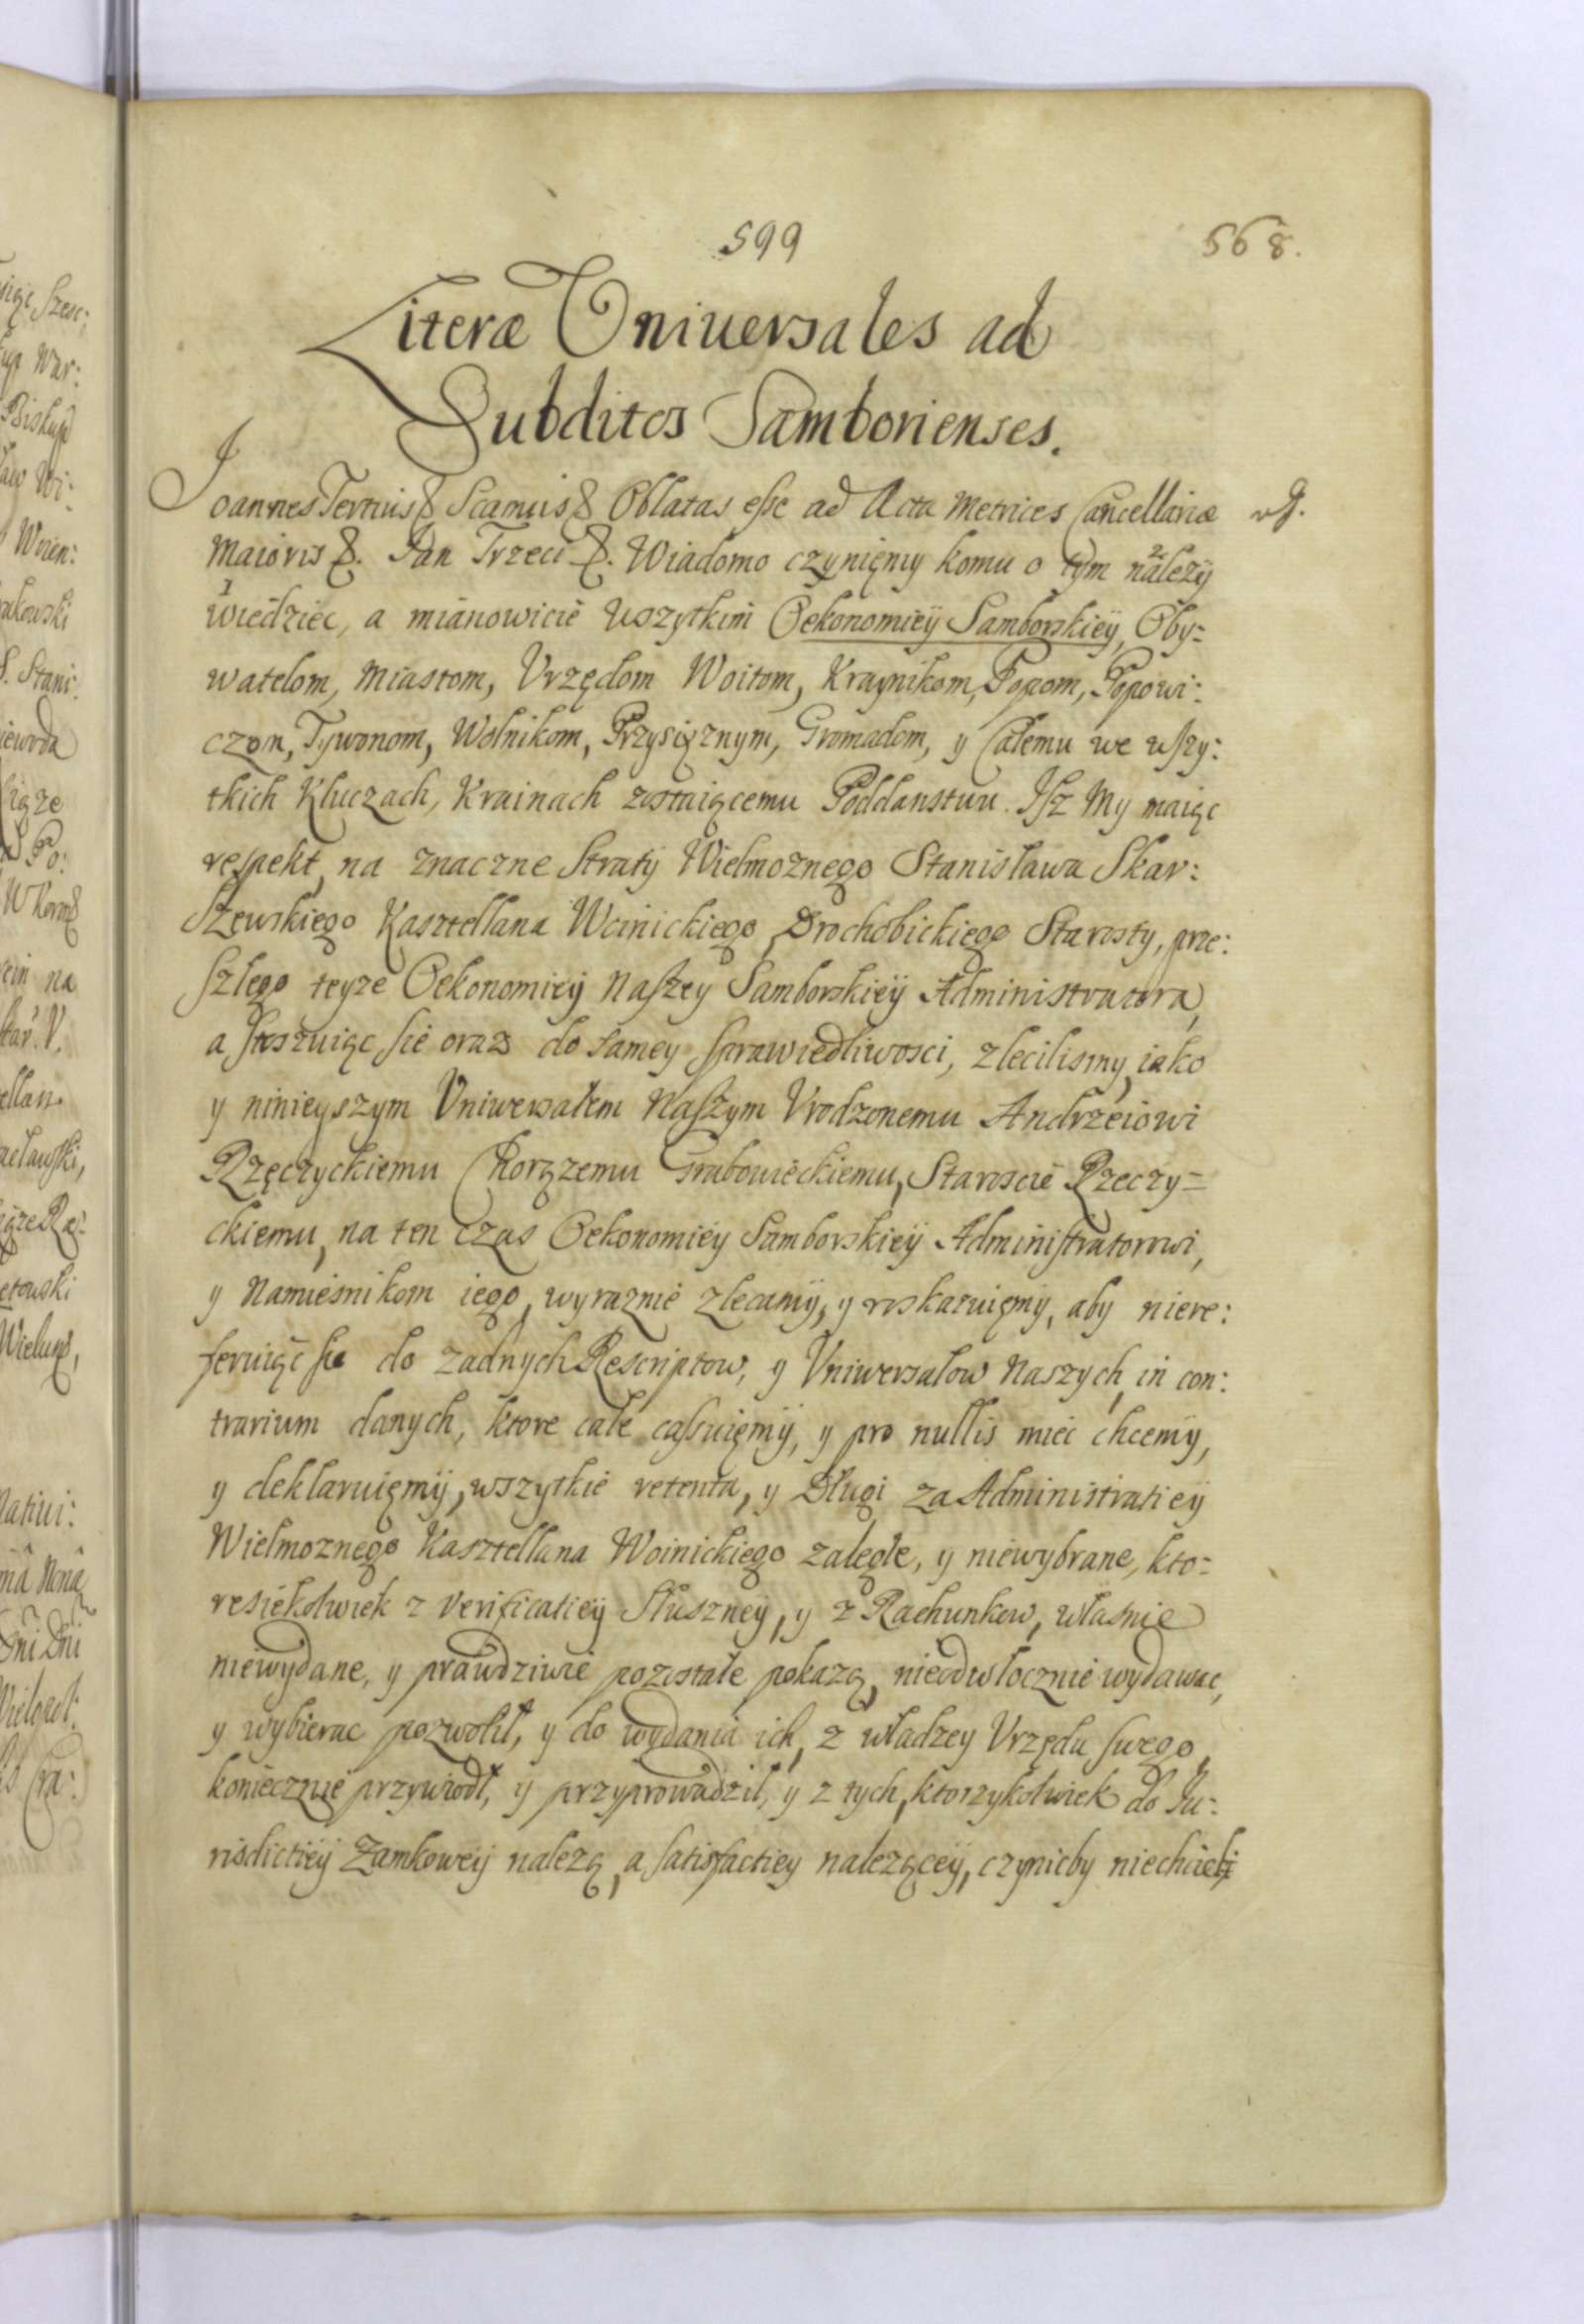 599 568.
Literæ Vniuersales ad
Subditos Samborienses.
Joannes Tertius & Scamus & Oblatas esse ad Acta Metrices Cancellariæ
Maioris &. Jan Trzeci &. Wiadomo czynięmy komu o tym należÿ
wiedziec, a mianowicie wszytkim Oekonomieÿ Samborskieÿ, Oby=
watelom, Miastom, Vrzędom Woitom, Kraynikom, Popom, Popowi:
czom, Tywonom, Wolnikom, Przysięznym, Gromadom, y Całemu we wszy:
tkich Kluczach, Krainach zostaiącemu Poddanstwu. Jsz My maiąc
respekt na znaczne Stratÿ Wielmoznego Stanisława Skar:
szewskiego Kasztellana Woinickiego Drochobickiego Starosty, prze:
szłego teyze Oekonomieÿ Naszey Samborskieÿ Administratora,
a stoszuiąc sie oraz do samey sprawiedliwosci, zlecilismy, iako
y ninieyszym Vniwersałem Naszym Vrodzonemu Andrzeiowi
Rzęczyckiemu Chorązemu Grabowieckiemu, Staroscie Rzeczy=
ckiemu, na ten czas Oekonomiey Samborskieÿ Administratorowi,
y Namiesnikom iego, wyraznie zlecamÿ, y roskazuięmy, aby niere:
feruiąc sie do zadnych Rescriptow, y Vniwersałow Naszych in con:
trarium danych, ktore cale cassuięmÿ, y pro nullis miec chcemÿ,
y deklaruięmÿ, wszytkie retenta, y Długi za Administratieÿ
Wielmoznego Kasztellana Woinickiego zaległe, y niewybrane, kto=
resiekolwiek z verificatieÿ Słuszneÿ, y z Rachunkow, własnie
niewydane, y prawdziwie pozostałe pokazą, nieodwłocznie wydawac,
y wybierac pozwolił, y do wydania ich, z władzey Vrzędu swego
koniecznie przywiodł, y przyprowadził, y z tych, ktorzykolwiek do Ju:
risdictieÿ Zamkoweÿ nalezą, a satisfactiey nalezącey, czynicby niechcieli